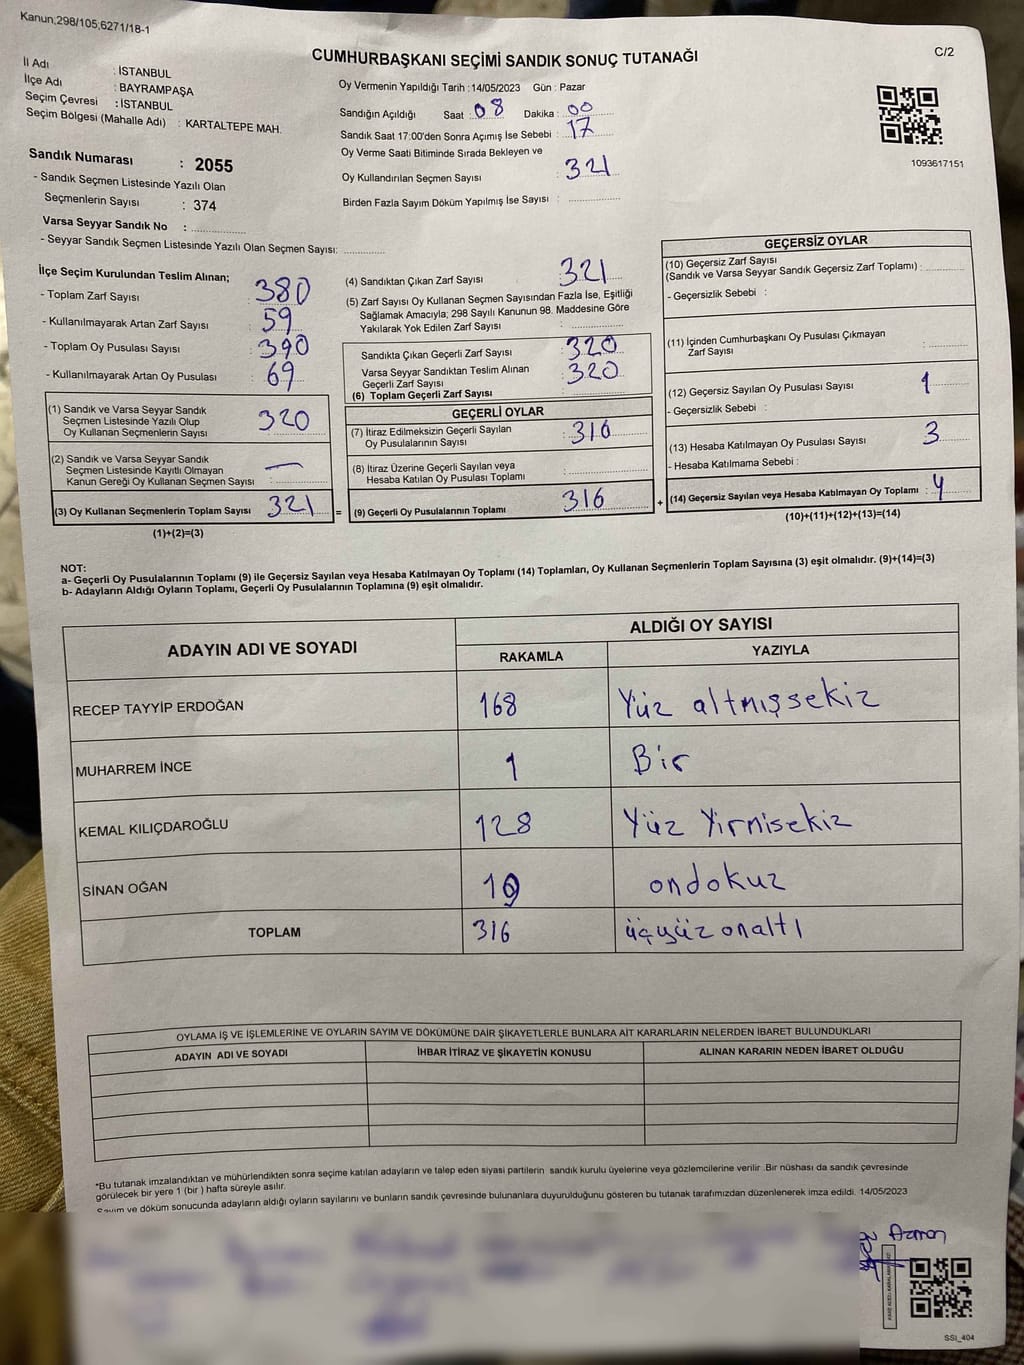 Kanun;298/105;6271/18-1
C/2
CUMHURBAŞKANI SEÇİMİ SANDIK SONUÇ TUTANAĞI
İl Adı : İSTANBUL
İlçe Adı : BAYRAMPAŞA
Seçim Çevresi : İSTANBUL
Seçim Bölgesi (Mahalle Adı) : KARTALTEPE MAH.
Oy Vermenin Yapıldığı Tarih : 14/05/2023 Gün : Pazar
Sandığın Açıldığı Saat : 08 Dakika : 00
Sandık Saat 17:00'den Sonra Açımış İse Sebebi : 17
Oy Verme Saati Bitiminde Sırada Bekleyen ve
Oy Kullandırılan Seçmen Sayısı : 321
Birden Fazla Sayım Döküm Yapılmış İse Sayısı :
1093617151
Sandık Numarası : 2055
- Sandık Seçmen Listesinde Yazılı Olan
Seçmenlerin Sayısı : 374
Varsa Seyyar Sandık No :
- Seyyar Sandık Seçmen Listesinde Yazılı Olan Seçmen Sayısı:
İlçe Seçim Kurulundan Teslim Alınan;
- Toplam Zarf Sayısı : 380
- Kullanılmayarak Artan Zarf Sayısı : 59
- Toplam Oy Pusulası Sayısı : 390
- Kullanılmayarak Artan Oy Pusulası : 69
(1) Sandık ve Varsa Seyyar Sandık
Seçmen Listesinde Yazılı Olup
Oy Kullanan Seçmenlerin Sayısı : 320
(2) Sandık ve Varsa Seyyar Sandık
Seçmen Listesinde Kayıtlı Olmayan
Kanun Gereği Oy Kullanan Seçmen Sayısı : —
(3) Oy Kullanan Seçmenlerin Toplam Sayısı : 321 =
(1)+(2)=(3)
(4) Sandıktan Çıkan Zarf Sayısı : 321
(5) Zarf Sayısı Oy Kullanan Seçmen Sayısından Fazla İse, Eşitliği
Sağlamak Amacıyla; 298 Sayılı Kanunun 98. Maddesine Göre
Yakılarak Yok Edilen Zarf Sayısı :
Sandıkta Çıkan Geçerli Zarf Sayısı : 320
Varsa Seyyar Sandıktan Teslim Alınan
Geçerli Zarf Sayısı : 320
(6) Toplam Geçerli Zarf Sayısı :
GEÇERLİ OYLAR
(7) İtiraz Edilmeksizin Geçerli Sayılan
Oy Pusulalarının Sayısı : 316
(8) İtiraz Üzerine Geçerli Sayılan veya
Hesaba Katılan Oy Pusulası Toplamı :
(9) Geçerli Oy Pusulalarının Toplamı : 316 +
GEÇERSİZ OYLAR
(10) Geçersiz Zarf Sayısı
(Sandık ve Varsa Seyyar Sandık Geçersiz Zarf Toplamı) :
- Geçersizlik Sebebi :
(11) İçinden Cumhurbaşkanı Oy Pusulası Çıkmayan
Zarf Sayısı :
(12) Geçersiz Sayılan Oy Pusulası Sayısı : 1
- Geçersizlik Sebebi :
(13) Hesaba Katılmayan Oy Pusulası Sayısı : 3
- Hesaba Katılmama Sebebi :
(14) Geçersiz Sayılan veya Hesaba Katılmayan Oy Toplamı : 4
(10)+(11)+(12)+(13)=(14)
NOT:
a- Geçerli Oy Pusulalarının Toplamı (9) ile Geçersiz Sayılan veya Hesaba Katılmayan Oy Toplamı (14) Toplamları, Oy Kullanan Seçmenlerin Toplam Sayısına (3) eşit olmalıdır. (9)+(14)=(3)
b- Adayların Aldığı Oyların Toplamı, Geçerli Oy Pusulalarının Toplamına (9) eşit olmalıdır.
ADAYIN ADI VE SOYADI
ALDIĞI OY SAYISI
RAKAMLA YAZIYLA
RECEP TAYYİP ERDOĞAN 168 Yüz altmışsekiz
MUHARREM İNCE 1 Bir
KEMAL KILIÇDAROĞLU 128 Yüz Yirmisekiz
SİNAN OĞAN 19 ondokuz
TOPLAM 316 üçyüz onaltı
OYLAMA İŞ VE İŞLEMLERİNE VE OYLARIN SAYIM VE DÖKÜMÜNE DAİR ŞİKAYETLERLE BUNLARA AİT KARARLARIN NELERDEN İBARET BULUNDUKLARI
ADAYIN ADI VE SOYADI İHBAR İTİRAZ VE ŞİKAYETİN KONUSU ALINAN KARARIN NEDEN İBARET OLDUĞU
*Bu tutanak imzalandıktan ve mühürlendikten sonra seçime katılan adayların ve talep eden siyasi partilerin sandık kurulu üyelerine veya gözlemcilerine verilir .Bir nüshası da sandık çevresinde
görülecek bir yere 1 (bir ) hafta süreyle asılır.
Sayım ve döküm sonucunda adayların aldığı oyların sayılarını ve bunların sandık çevresinde bulunanlara duyurulduğunu gösteren bu tutanak tarafımızdan düzenlenerek imza edildi. 14/05/2023
Azman
SSI_404